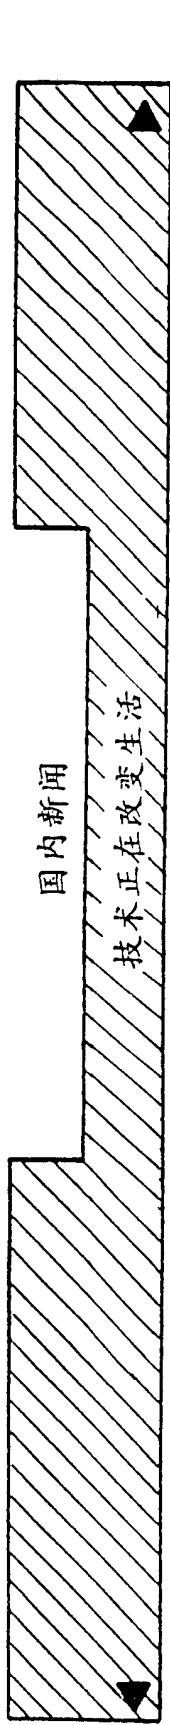 国内新闻
技术正在改变生活